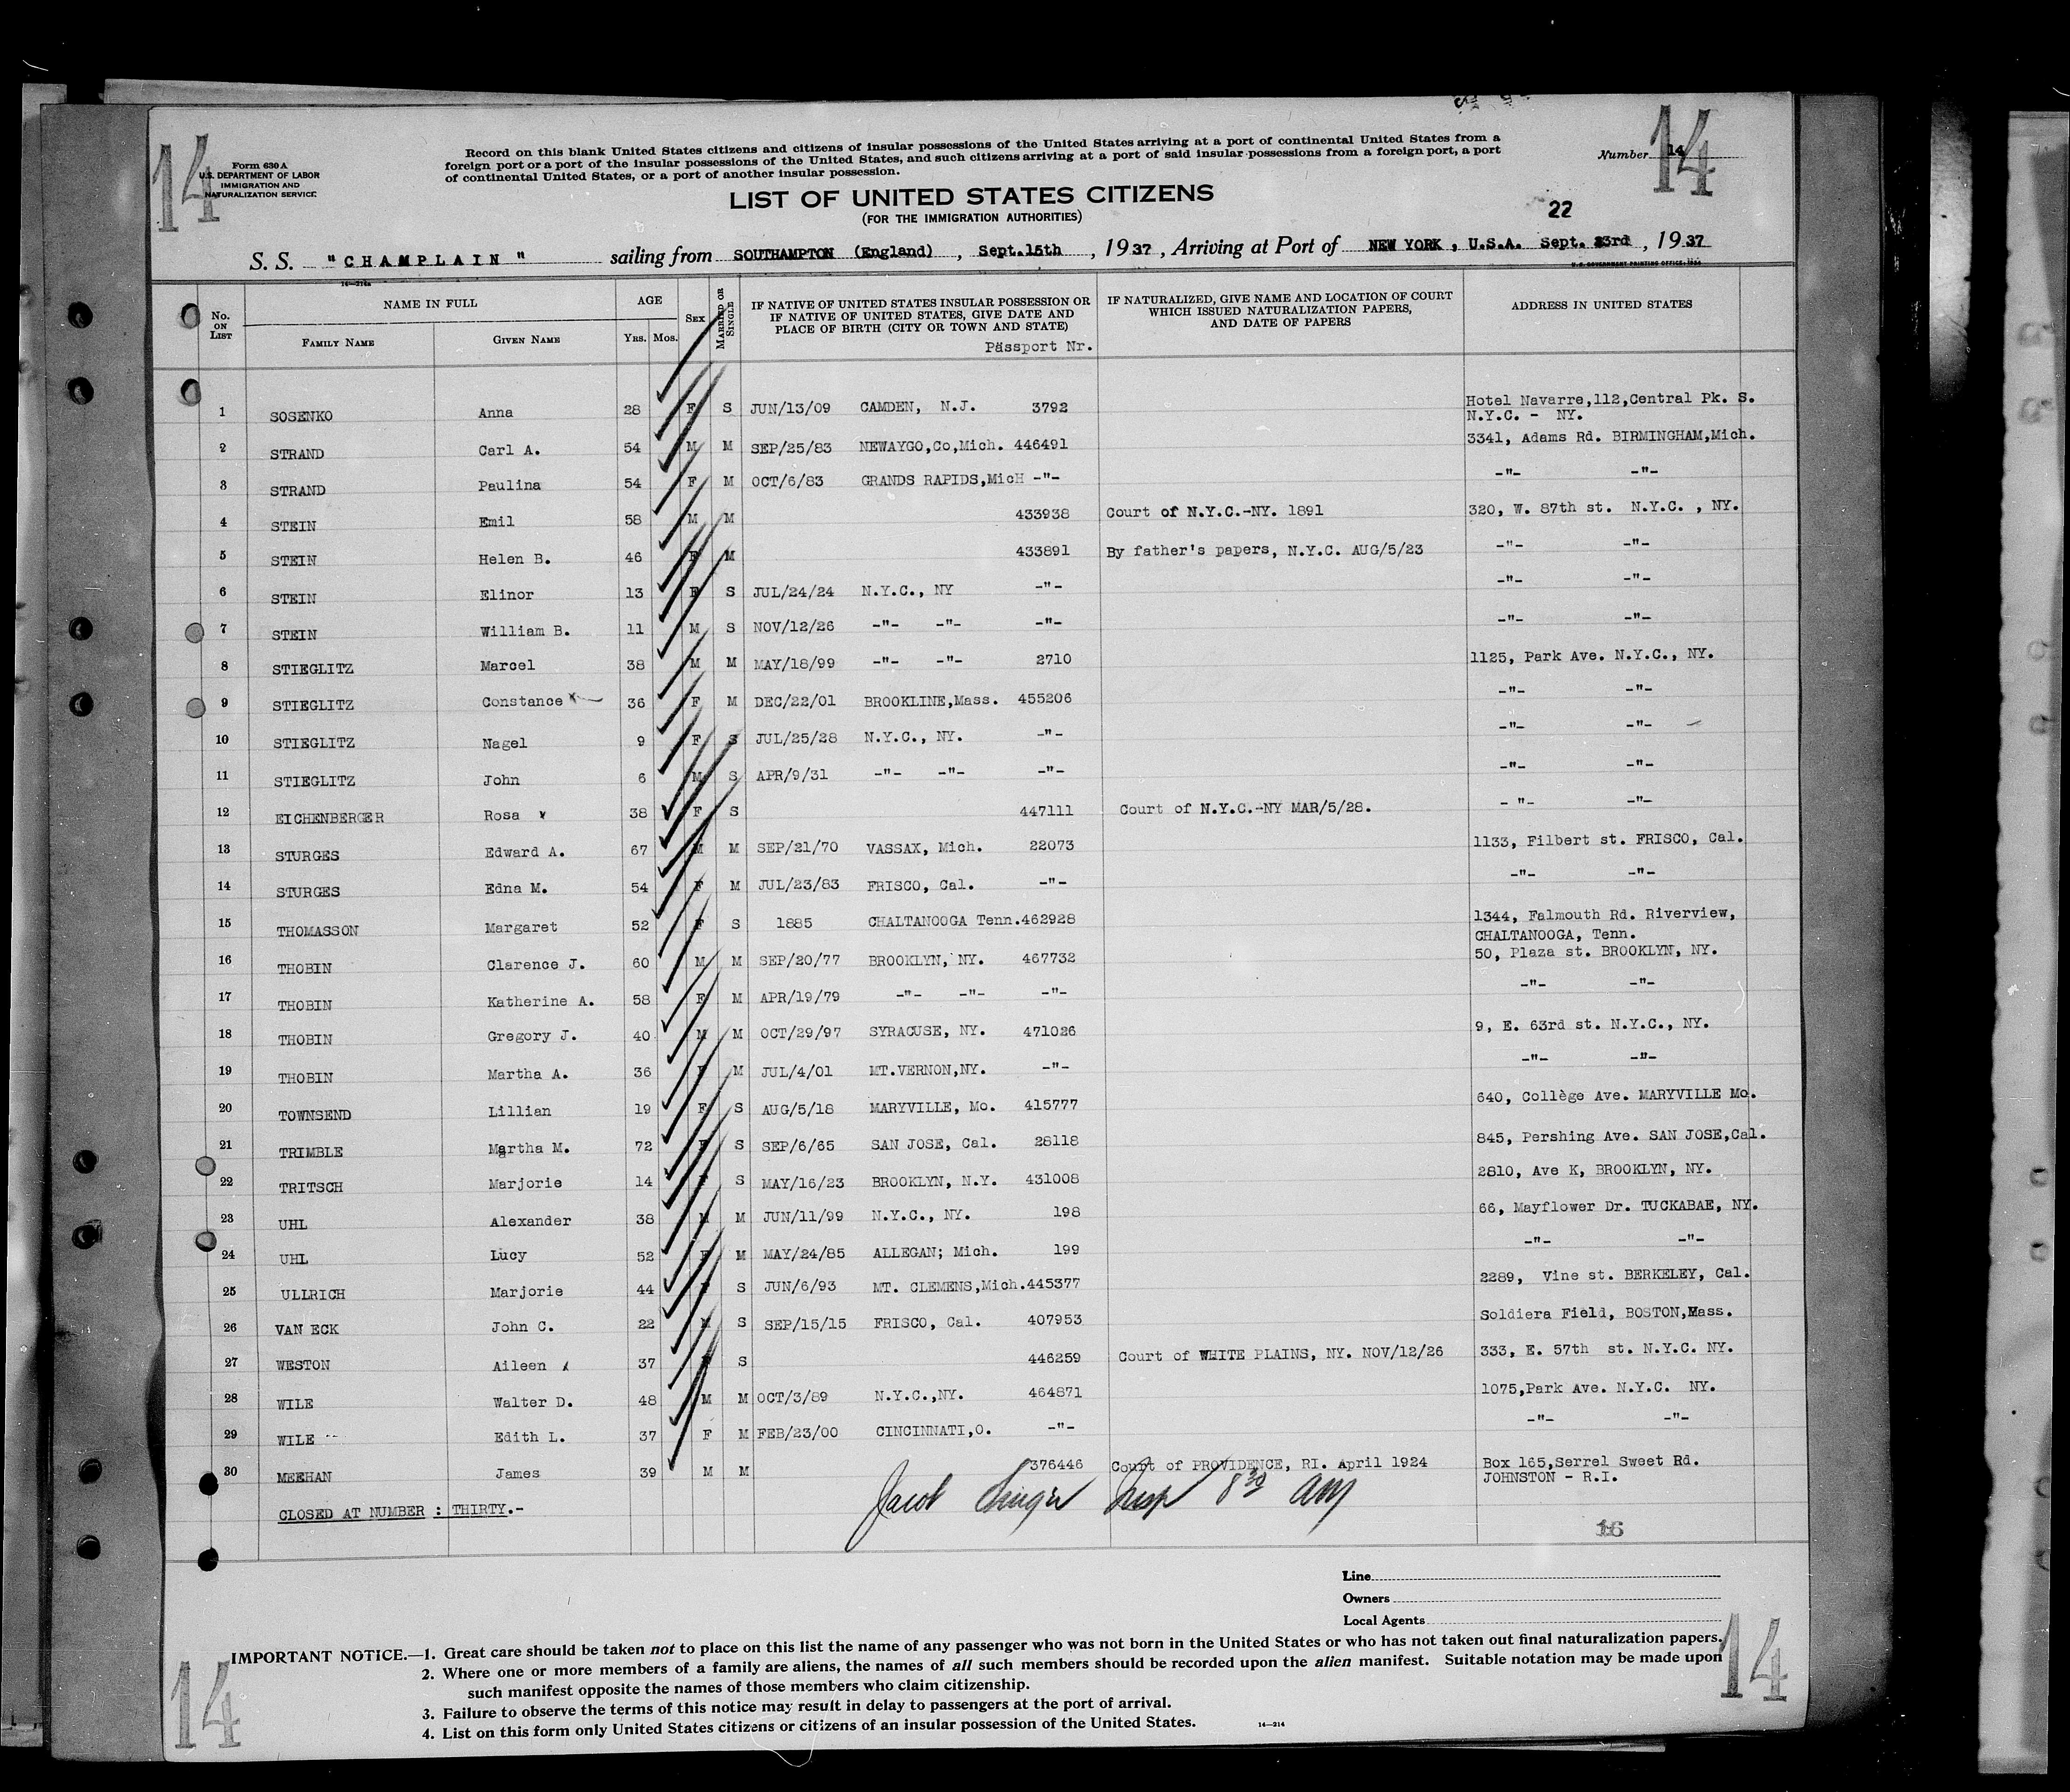 14
14
Form 630 A
U.S. DEPARTMENT OF LABOR
IMMIGRATION AND
NATURALIZATION SERVICE
Record on this blank United States citizens and citizens of insular possessions of the United States arriving at a port of continental United States from a
foreign port or a port of the insular possessions of the United States, and such citizens arriving at a port of said insular possessions from a foreign port, a port
of continental United States, or a port of another insular possession.
Number 14
LIST OF UNITED STATES CITIZENS
(FOR THE IMMIGRATION AUTHORITIES)
22
S. S. "CHAMPLAIN" sailing from SOUTHAMPTON (England), Sept.15th, 1937, Arriving at Port of NEW YORK, U.S.A. Sept. 23rd, 1937
14-214a
U.S. GOVERNMENT PRINTING OFFICE: 1934
No. ON LIST NAME IN FULL FAMILY NAME GIVEN NAME AGE YRS. MOS. SEX MARRIED OR SINGLE IF NATIVE OF UNITED STATES INSULAR POSSESSION OR IF NATIVE OF UNITED STATES, GIVE DATE AND PLACE OF BIRTH (CITY OR TOWN AND STATE) Passport Nr. IF NATURALIZED, GIVE NAME AND LOCATION OF COURT WHICH ISSUED NATURALIZATION PAPERS, AND DATE OF PAPERS ADDRESS IN UNITED STATES
1 SOSENKO Anna 28 F S JUN/13/09 CAMDEN, N.J. 3792 Hotel Navarre,112,Central Pk. S.
N.Y.C. - NY.
2 STRAND Carl A. 54 M M SEP/25/83 NEWAYGO,Co,Mich. 446491 3341, Adams Rd. BIRMINGHAM,Mich.
3 STRAND Paulina 54 F M OCT/6/83 GRANDS RAPIDS,MicH -"- -"- -"-
4 STEIN Emil 58 M M 433938 Court of N.Y.C.-NY. 1891 320, W. 87th st. N.Y.C. , NY.
5 STEIN Helen B. 46 F M 433891 By father's papers, N.Y.C. AUG/5/23 -"- -"-
6 STEIN Elinor 13 F S JUL/24/24 N.Y.C., NY -"- -"- -"-
7 STEIN William B. 11 M S NOV/12/26 -"- -"- -"- -"- -"-
8 STIEGLITZ Marcel 38 M M MAY/18/99 -"- -"- 2710 1125, Park Ave. N.Y.C., NY.
9 STIEGLITZ Constance 36 F M DEC/22/01 BROOKLINE,Mass. 455206 -"- -"-
10 STIEGLITZ Nagel 9 F S JUL/25/28 N.Y.C., NY. -"- -"- -"-
11 STIEGLITZ John 6 M S APR/9/31 -"- -"- -"- -"- -"-
12 EICHENBERGER Rosa 38 F S 447111 Court of N.Y.C.-NY MAR/5/28. - "- -"-
13 STURGES Edward A. 67 M M SEP/21/70 VASSAX, Mich. 22073 1133, Filbert st. FRISCO, Cal.
14 STURGES Edna M. 54 F M JUL/23/83 FRISCO, Cal. -"- -"- -"-
15 THOMASSON Margaret 52 F S 1885 CHALTANOOGA Tenn.462928 1344, Falmouth Rd. Riverview,
CHALTANOOGA, Tenn.
16 THOBIN Clarence J. 60 M M SEP/20/77 BROOKLYN, NY. 467732 50, Plaza st. BROOKLYN, NY.
17 THOBIN Katherine A. 58 F M APR/19/79 -"- -"- -"- -"- -"-
18 THOBIN Gregory J. 40 M M OCT/29/97 SYRACUSE, NY. 471026 9, E. 63rd st. N.Y.C., NY.
19 THOBIN Martha A. 36 F M JUL/4/01 MT.VERNON,NY. -"- -"- -"-
20 TOWNSEND Lillian 19 F S AUG/5/18 MARYVILLE, Mo. 415777 640, Collège Ave. MARYVILLE Mo.
21 TRIMBLE Martha M. 72 F S SEP/6/65 SAN JOSE, Cal. 28118 845, Pershing Ave. SAN JOSE,Cal.
22 TRITSCH Marjorie 14 F S MAY/16/23 BROOKLYN, N.Y. 431008 2810, Ave K, BROOKLYN, NY.
23 UHL Alexander 38 M M JUN/11/99 N.Y.C., NY. 198 66, Mayflower Dr. TUCKABAE, NY.
24 UHL Lucy 52 F M MAY/24/85 ALLEGAN; Mich. 199 -"- -"-
25 ULLRICH Marjorie 44 F S JUN/6/93 MT. CLEMENS,Mich.445377 2289, Vine st. BERKELEY, Cal.
26 VAN ECK John C. 22 M S SEP/15/15 FRISCO, Cal. 407953 Soldiera Field, BOSTON,Mass.
27 WESTON Aileen 37 F S 446259 Court of WHITE PLAINS, NY. NOV/12/26 333, E. 57th st. N.Y.C. NY.
28 WILE Walter D. 48 M M OCT/3/89 N.Y.C.,NY. 464871 1075,Park Ave. N.Y.C. NY.
29 WILE Edith L. 37 F M FEB/23/00 CINCINNATI,O. -"- -"- -"-
30 MEEHAN James 39 M M 376446 Court of PROVIDENCE, RI. April 1924 Box 165,Serrel Sweet Rd.
JOHNSTON - R.I.
Jacob Singer Insp 8 30 AM
CLOSED AT NUMBER : THIRTY.-
16
Line
Owners
Local Agents
IMPORTANT NOTICE.—1. Great care should be taken not to place on this list the name of any passenger who was not born in the United States or who has not taken out final naturalization papers.
2. Where one or more members of a family are aliens, the names of all such members should be recorded upon the alien manifest. Suitable notation may be made upon
such manifest opposite the names of those members who claim citizenship.
3. Failure to observe the terms of this notice may result in delay to passengers at the port of arrival.
4. List on this form only United States citizens or citizens of an insular possession of the United States.
14—214
14
14